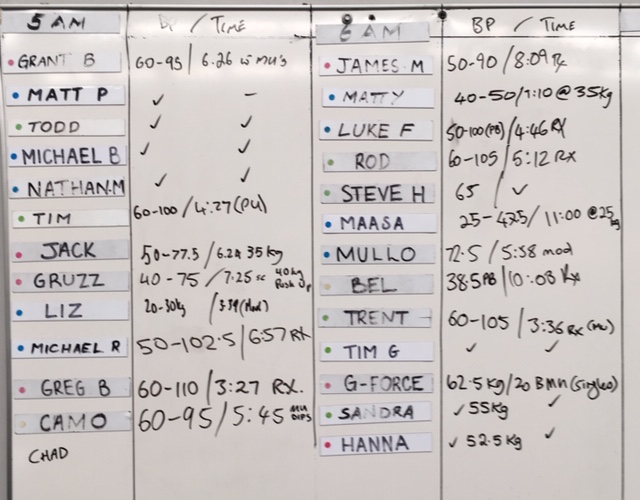 5 AM BP / TIME
GRANT B 60-95 / 6.26 w MU's
MATT P ✓ –
TODD ✓ ✓
MICHAEL B ✓ ✓
NATHAN.M ✓ ✓
TIM 60-100 / 4:27 (PU)
JACK 50-77.5 / 6.2 35 kg
GRUZZ 40-75 / 7.25 40kg Push Up
LIZ 20-30kg / (Mod)
MICHAEL R 50-102.5 / 6:57 RX
GREG B 60-110 / 3:27 RX.
CAMO 60-95 / 5:45 DIPS
CHAD
6 AM BP / TIME
JAMES M 50-90 / 8:09 Rx
MATTY 40-50 / 7:10 @ 35kg
LUKE F 50-100 (PB) / 4:46 RX
ROD 60-105 / 5:12 RX
STEVE H 65 / ✓
MAASA 25-47.5 / 11:00 @ 25kg
MULLO 72.5 / 5:58 mod
BEL 38.5 PB / 10:08 Rx
TRENT 60-105 / 3:36 Rx (MU)
TIM G ✓ ✓
G-FORCE 62.5 kg / 20 BMU (singles)
SANDRA ✓ 55kg ✓
HANNA ✓ 52.5 kg ✓